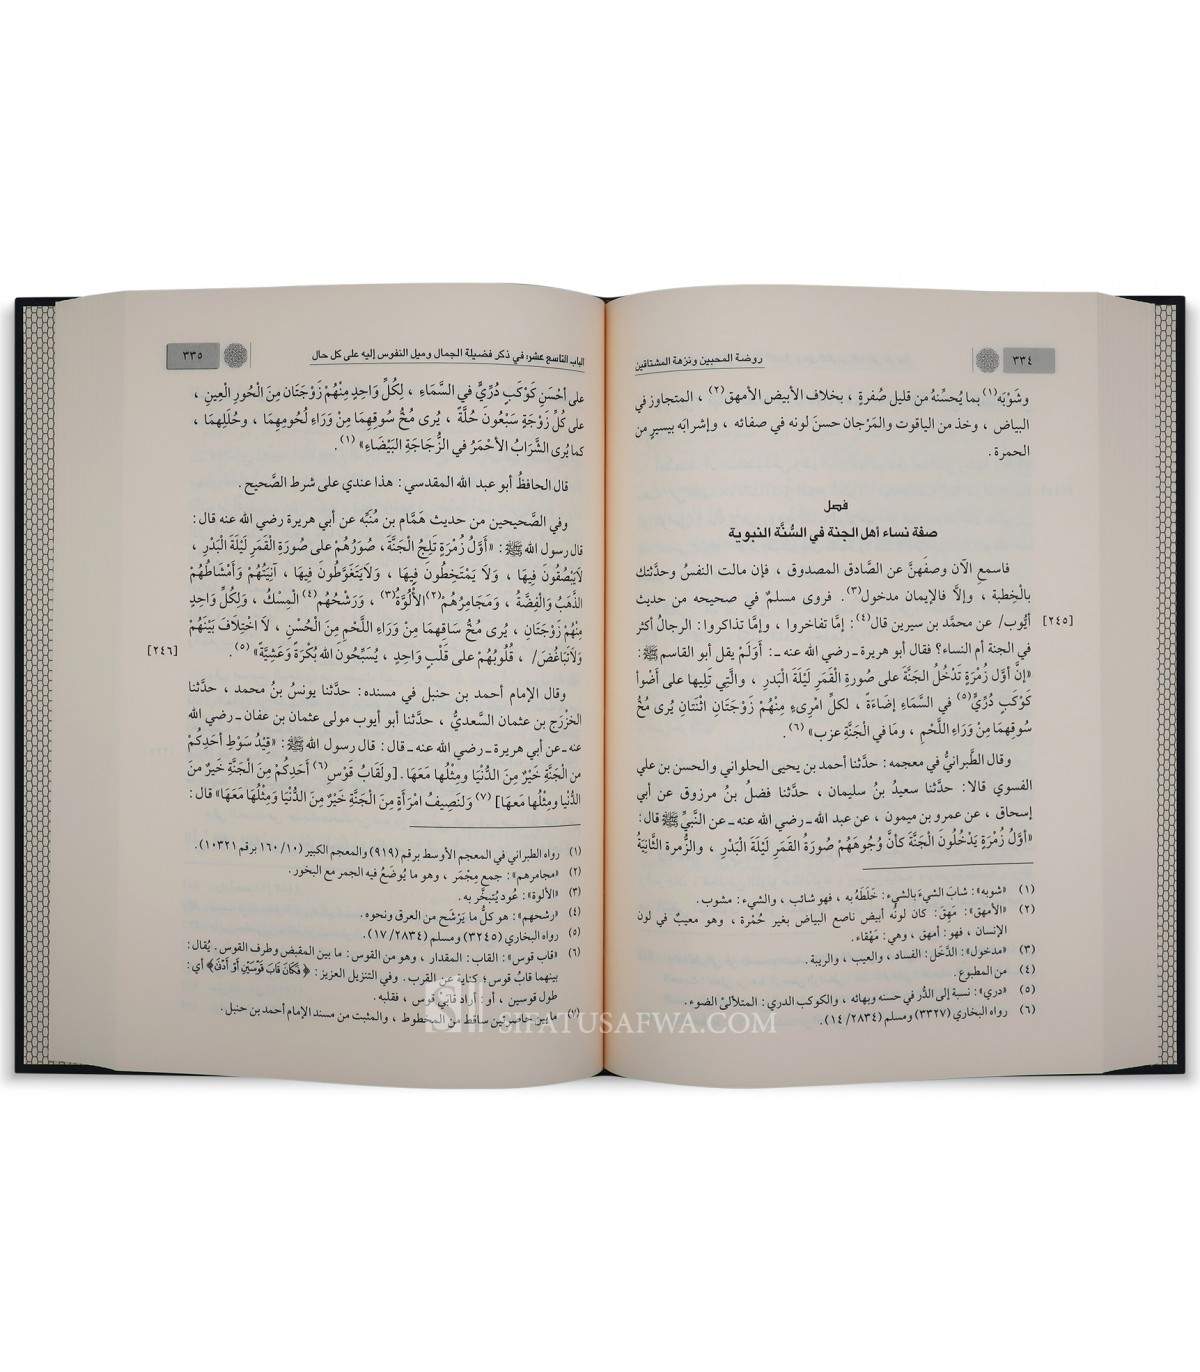 ٣٣٤
روضة المحبين ونزهة المشتاقين
وشَوْبَه(١) بما يُحسِّنُهُ من قليل صُفرةٍ ، بخلاف الأبيض الأمهق(٢) ، المتجاوز في
البياض ، وخذ من الياقوت والمَرْجان حسنَ لونه في صفائه ، وإشرابَه بيسيرٍ من
الحمرة .
فصل
صفة نساء أهل الجنة في السُّنَّة النبوية
فاسمع الآن وصفَهنَّ عن الصَّادق المصدوق ، فإن مالت النفسُ وحدَّثتك
بالْخِطبة ، وإلاَّ فالإيمان مدخول(٣). فروى مسلمٌ في صحيحه من حديث
أيُّوب/ عن محمَّد بن سيرين قال(٤): إمَّا تفاخروا ، وإمَّا تذاكروا: الرجالُ أكثر
[٢٤٥]
في الجنة أم النساء؟ فقال أبو هريرة ـ رضي الله عنه ـ: أَوَلَمْ يقل أبو القاسم ﷺ:
«إنَّ أوَّل زُمْرَةٍ تَدْخُلُ الجَنَّةَ على صُورةِ القَمَرِ لَيْلَةَ الْبَدرِ ، والَّتِي تَلِيها على أَضْوَأ
كَوْكَبٍ دُرِّيٍّ(٥) في السَّمَاءِ إضَاءَةً ، لكلِّ امْرِىءٍ مِنْهُمْ زَوْجَتَانِ اثْنَتَانِ يُرى مُخُّ
سُوقِهِمَا مِنْ وَرَاءِ اللَّحْمِ ، وَمَا في الجَنَّةِ عزب»(٦).
وقال الطَّبرانيُّ في معجمه: حدَّثنا أحمد بن يحيى الحلواني والحسن بن علي
الفسوي قالا: حدَّثنا سعيدُ بنُ سليمان ، حدَّثنا فضلُ بنُ مرزوق عن أبي
إسحاق ، عن عمرو بن ميمون ، عن عبد الله ـ رضي الله عنه ـ عن النَّبيِّ ﷺ قال:
«أوَّلُ زُمْرَةٍ يَدْخُلُونَ الْجَنَّةَ كأنَّ وُجُوهَهُمْ صُورَةُ القَمَرِ لَيْلَةَ الْبَدْرِ ، والزُّمرة الثَّانِيَةُ
(١) «شوبه»: شابَ الشيءَ بالشيء: خَلَطَهُ به ، فهو شائب ، والشيء: مشوب.
(٢) «الأمهق»: مَهِقَ: كان لونُه أبيض ناصع البياض بغير حُمْرة ، وهو معيبٌ في لون
الإنسان ، فهو: أمهق ، وهي: مَهْقاء.
(٣) «مدخول»: الدَّخَل: الفساد ، والعيب ، والريبة.
(٤) من المطبوع.
(٥) «دري»: نسبة إلى الدُّر في حسنه وبهائه ، والكوكب الدري: المتلألئ الضوء.
(٦) رواه البخاري (٣٣٢٧) ومسلم (٢٨٣٤/ ١٤).
الباب التاسع عشر: في ذكر فضيلة الجمال وميل النفوس إليه على كل حال
٣٣٥
على أَحْسَنِ كَوْكَبٍ دُرِّيٍّ في السَّمَاءِ ، لِكُلِّ وَاحِدٍ مِنْهُمْ زَوْجَتَان مِنَ الْحُورِ الْعِينِ ،
على كُلِّ زَوْجَةٍ سَبْعُونَ حُلَّةً ، يُرى مُخُّ سُوقِهِمَا مِنْ وَرَاءِ لُحُومِهِمَا ، وحُلَلِهِمَا ،
كما يُرى الشَّرَابُ الأحْمَرُ في الزُّجَاجَةِ البَيْضَاءِ»(١).
قال الحافظُ أبو عبد الله المقدسي: هذا عندي على شرط الصَّحيح.
وفي الصَّحيحين من حديث همَّام بن مُنَبِّه عن أبي هريرة رضي الله عنه قال:
قال رسول الله ﷺ: «أوَّلُ زُمْرَةٍ تَلِجُ الْجَنَّةَ، صُوَرُهُمْ على صُورَةِ الْقَمَرِ لَيْلَةَ الْبَدْرِ ،
لَايَبْصُقُونَ فِيهَا ، وَلَا يَمْتَخِطُونَ فِيهَا ، وَلَايَتَغَوَّطُونَ فِيهَا ، آنِيَتُهُمْ وَأَمْشَاطُهُمْ
الذَّهَبُ وَالْفِضَّةُ ، وَمَجَامِرُهُمْ(٢) الأُلُوَّةُ(٣) ، وَرَشْحُهُمْ(٤) الْمِسْكُ ، وَلِكُلِّ وَاحِدٍ
مِنْهُمْ زَوْجَتَانِ ، يُرى مُخُّ سَاقِهِمَا مِنْ وَرَاءِ اللَّحْمِ مِنَ الْحُسْنِ ، لَا اخْتِلَافَ بَيْنَهُمْ
وَلَاتَبَاغُضَ/ ، قُلُوبُهُمْ على قَلْبٍ وَاحِدٍ ، يُسَبِّحُونَ الله بُكْرَةً وَعَشِيَّةً»(٥).
[٢٤٦]
وقال الإمام أحمد بن حنبل في مسنده: حدَّثنا يونسُ بنُ محمد ، حدَّثنا
الخزْرَج بن عثمان السَّعديُّ ، حدَّثنا أبو أيوب مولى عثمان بن عفان ـ رضي الله
عنه ـ عن أبي هريرة ـ رضي الله عنه ـ قال: قال رسول الله ﷺ: «قِيْدُ سَوْطِ أحَدِكُمْ
من الْجَنَّةِ خَيْرٌ مِنَ الدُّنْيَا ومِثْلِها مَعَهَا. [ولَقَابُ قَوْسِ(٦) أَحَدِكُمْ مِنَ الْجَنَّةِ خَيْرٌ منَ
الدُّنْيا ومِثْلها مَعهَا](٧) وَلَنَصِيفُ امْرَأَةٍ مِنَ الْجَنَّةِ خَيْرٌ مِنَ الدُّنْيَا وَمِثْلِهَا مَعَهَا» قال:
(١) رواه الطبراني في المعجم الأوسط برقم (٩١٩) والمعجم الكبير (١٠/ ١٦٠ برقم ١٠٣٢١).
(٢) «مجامرهم»: جمع مِجْمَر ، وهو ما يُوضَعُ فيه الجمر مع البخور.
(٣) «الألوة»: عُود يُتبخَّر به.
(٤) «رشحهم»: هو كلُّ ما يَرْشَح من العرق ونحوه.
(٥) رواه البخاري (٣٢٤٥) ومسلم (٢٨٣٤/ ١٧).
(٦) «قاب قوس»: القاب: المقدار ، وهو من القوس: ما بين المقبض وطرف القوس. يُقال:
بينهما قابُ قوس؛ كناية عن القرب. وفي التنزيل العزيز: ﴿فَكَانَ قَابَ قَوْسَيْنِ أَوْ أَدْنَىٰ﴾ أي:
طول قوسين ، أو: أراد قابَيْ قوس ، فقلبه.
(٧) ما بين حاصرتين ساقط من المخطوط ، والمثبت من مسند الإمام أحمد بن حنبل.
SIFATUSAFWA.COM